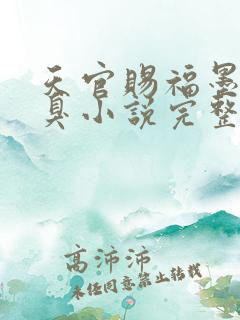 天官賜福墨
小說完整
高沛沛
未经同意禁止转载